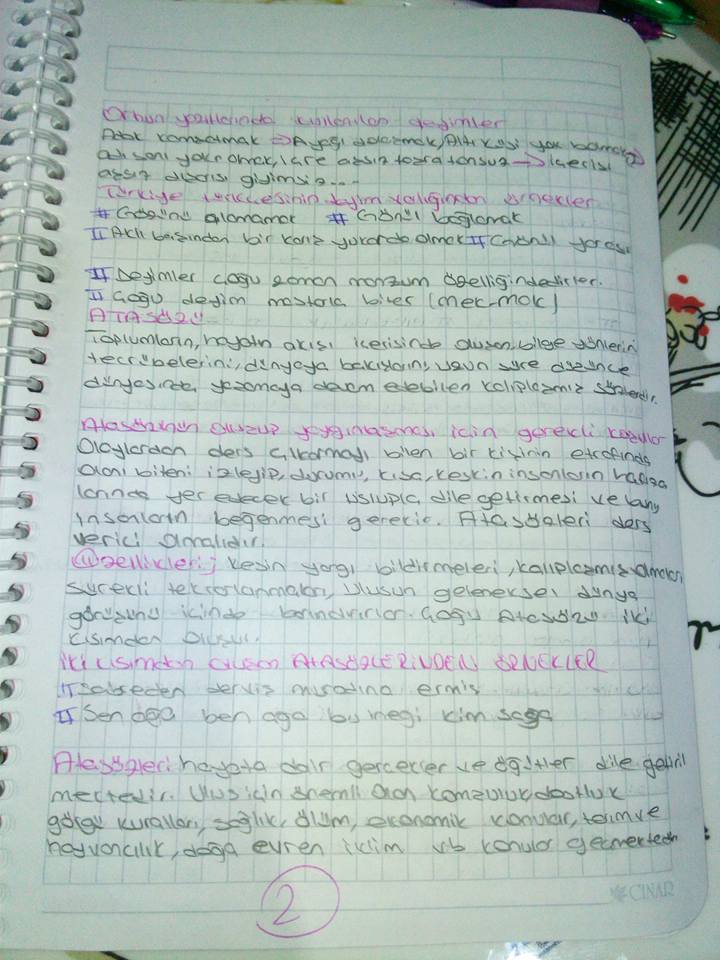 Orhun yazıtlarında kullanılan deyimler
Adak kamşatmak → Ayağı dolaşmak, Altı kası yok bolmak →
adı sanı yok olmak, içre aşsız taşra tonsuz → içerisi
aşsız dışarısı giyimsiz...
Türkiye Türkçesinin deyim varlığından örnekler
# Gözünü alamamak # Gönül bağlamak
II Aklı başından bir karış yukarda olmak II Gönül yarası
II Deyimler çoğu zaman manzum özelliğindedirler.
II Çoğu deyim mastarla biter (mek-mak)
ATASÖZÜ
Toplumların, hayatın akışı içerisinde oluşan, bilge yönlerin
tecrübelerini, dünyaya bakışların, uzun süre düşünce
dünyasında, yaşamaya devam edebilen kalıplaşmış sözlerdir.
Atasözünün oluşup yaygınlaşması için gerekli koşullar
Olaylardan ders çıkarmayı bilen bir kişinin etrafında
olanı biteni izleyip, durumu, kısa, keskin insanların hafıza
larında yer edecek bir üslupla, dile getirmesi ve bunu
insanların beğenmesi gerekir. Atasözleri ders
verici olmalıdır.
Özellikleri; kesin yargı bildirmeleri, kalıplaşmış olmaları
sürekli tekrarlanmaları, ulusun geleneksel dünya
görüşünü içinde barındırırlar. Çoğu Atasözü iki
kısımdan oluşur.
İki kısımdan oluşan ATASÖZLERİNDEN ÖRNEKLER
II Sabreden derviş muradına ermiş
II Sen ağa ben ağa bu inegi kim sağa
Atasözleri hayata dair gerçekler ve öğütler dile getiril
mektedir. Ulus için önemli olan komşuluk, dostluk
görgü kuralları, sağlık, ölüm, ekonomik konular, tarım ve
hayvancılık, doğa evren iklim vb konular geçmektedir
2
ÇINAR